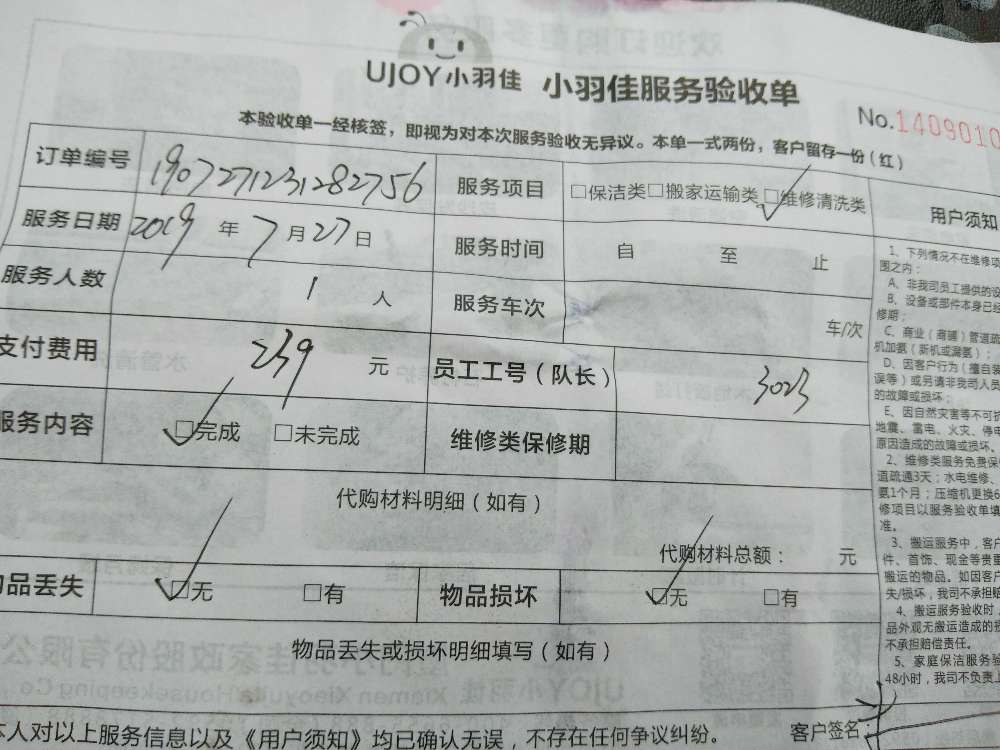 UJOY小羽佳 小羽佳服务验收单
No.1409010
本验收单一经核签，即视为对本次服务验收无异议。本单一式两份，客户留存一份（红）
订单编号 1907271231282756 服务项目 □保洁类□搬家运输类□维修清洗类
服务日期 2019年7月27日 服务时间 自 至 止
服务人数 1人 服务车次 车/次
支付费用 239元 员工工号（队长） 3023
服务内容 □完成 □未完成 维修类保修期
代购材料明细（如有）
代购材料总额： 元
物品丢失 □无 □有 物品损坏 □无 □有
物品丢失或损坏明细填写（如有）
本人对以上服务信息以及《用户须知》均已确认无误，不存在任何争议纠纷。
客户签名
用户须知
1、下列情况不在维修项
围之内：
A、非我司员工提供的设
B、设备或部件本身已经
修期；
C、商业（商铺）管道疏
机加氨（新机或漏氨）；
D、因客户行为（擅自装
误等）或另请非我司人员
的故障或损坏；
E、因自然灾害等不可抗
地震、雷电、火灾、停电
原因造成的故障或损坏。
2、维修类服务免费保
道疏通3天；水电维修、
氨1个月；压缩机更换6
修项目以服务验收单填
准。
3、搬运服务中，客户
件、首饰、现金等贵重
搬运的物品。如因客户
失/损坏，我司不承担赔
4、搬运服务验收时，
品外观无搬运造成的损
不承担赔偿责任。
5、家庭保洁服务验
48小时，我司不负责上